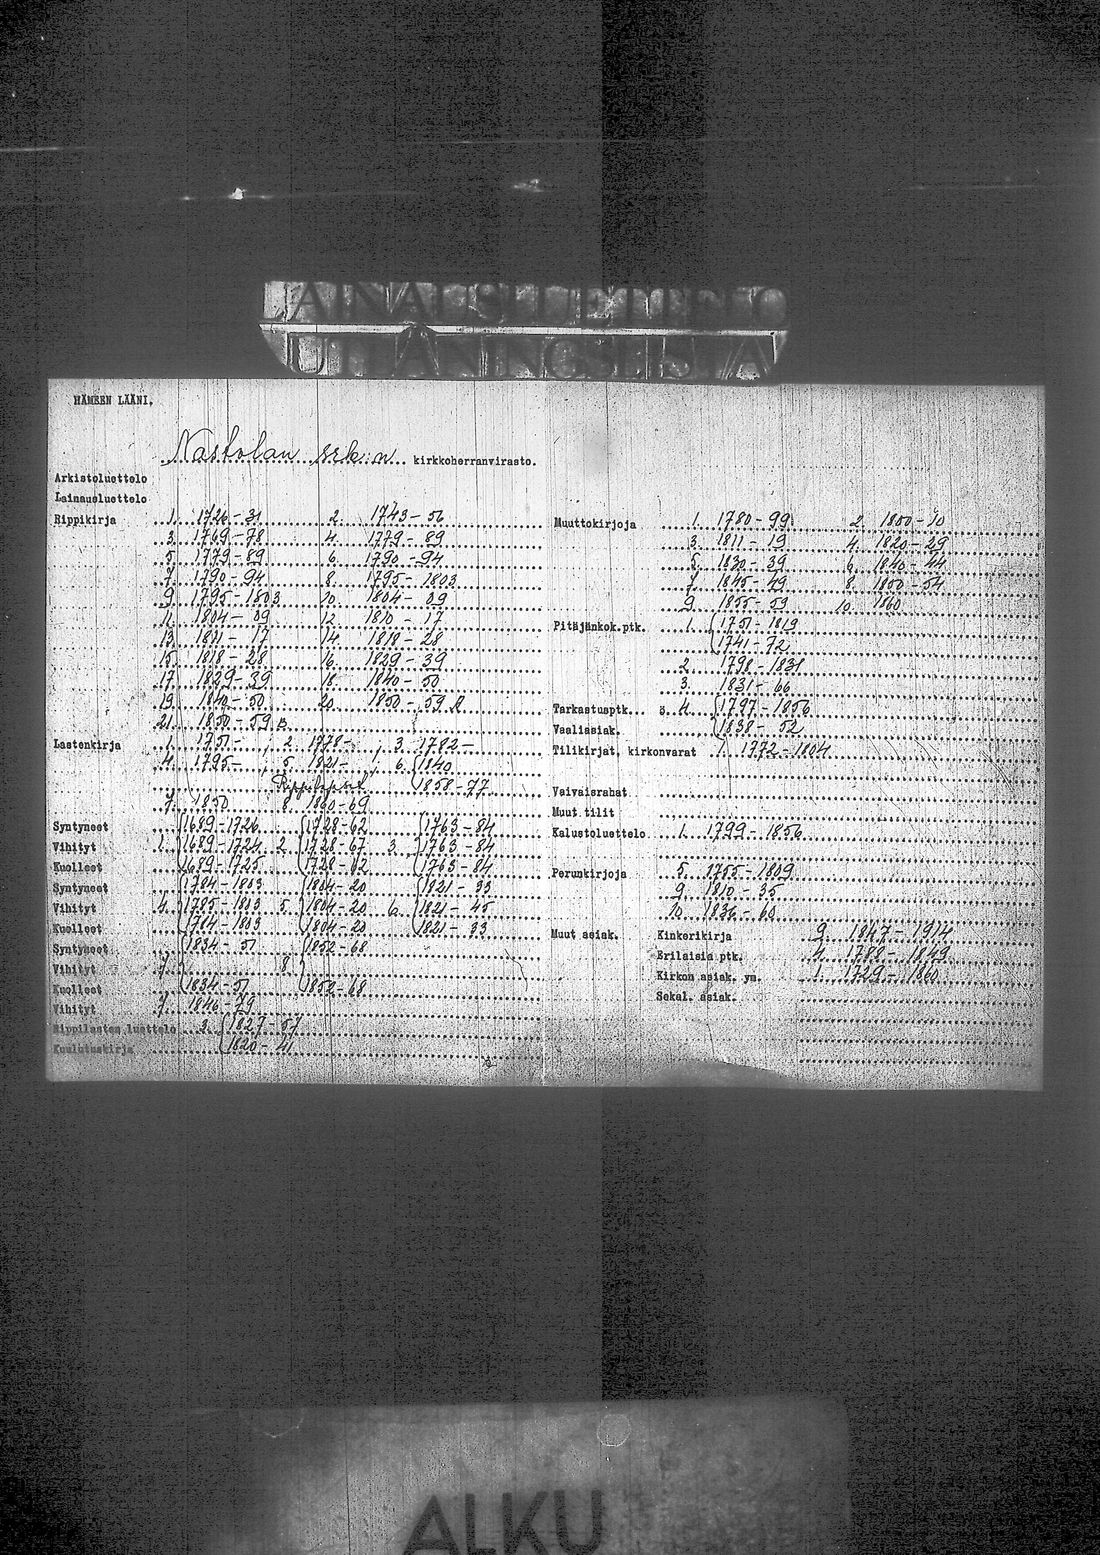 LAINAUSLUETTELO
UTLÅNINGSLISTA
HÄMEEN LÄÄNI.
Nastolan srk:n kirkkoherranvirasto.
Arkistoluettelo
Lainausluettelo
Rippikirja 1. 1726-31 2. 1743-56
3. 1769-78 4. 1779-89
5. 1779-89 6. 1790-94
7. 1790-94 8. 1795-1803
9. 1795-1803 10. 1804-09
11. 1804-09 12. 1810-17
13. 1811-17 14. 1818-28
15. 1818-28 16. 1829-39
17. 1829-39 18. 1840-50
19. 1840-50 20. 1850-59 A
21. 1850-59 B
Lastenkirja 1. 1751- 2. 1778- 3. 1782-
4. 1795- 5. 1821- 6. 1840
1858-77
7. 1850 8. 1860-69
Syntyneet 1689-1726 1728-62 1763-84
Vihityt 1. 1689-1724 2. 1728-67 3. 1763-84
Kuolleet 1689-1725 1728-62 1763-84
Syntyneet 1784-1803 1804-20 1821-33
Vihityt 4. 1785-1803 5. 1804-20 6. 1821-45
Kuolleet 1784-1803 1804-20 1821-33
Syntyneet 1834-51 1852-68
Vihityt 7. 8.
Kuolleet 1834-51 1852-68
Vihityt 7. 1846-79
Rippilasten luettelo 3. 1827-57
Kuulutuskirja 1820-41
Muuttokirjoja 1. 1780-99 2. 1800-10
3. 1811-19 4. 1820-29
5. 1830-39 6. 1840-44
7. 1845-49 8. 1850-54
9. 1855-59 10. 1860
Pitäjänkok.ptk. 1. 1751-1819
1741-72
2. 1798-1831
3. 1831-66
Tarkastusptk. s. 4. 1797-1856
Vaaliasiak. 1838-52
Tilikirjat, kirkonvarat 1. 1772-1804
Vaivaisrahat
Muut tilit
Kalustoluettelo 1. 1799-1856
Perunkirjoja 5. 1755-1809
9. 1810-35
10. 1836-60
Muut asiak. Kinkerikirja 9. 1847-1914
Erilaisia ptk. 4. 1788-1849
Kirkon asiak. ym. 1. 1729-1860
Sekal. asiak.
ALKU